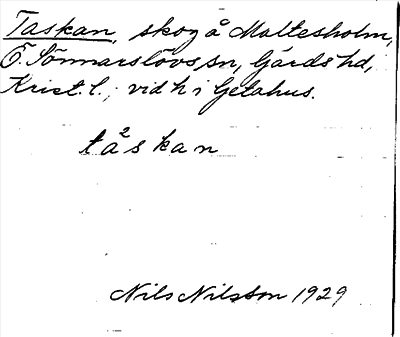 Taskan, skog å Maltesholm,
Ö. Sönnarslövs sn, Gärds hd,
Krist. l., vid h i Getahus.
tå²skan
Nils Nilsson 1929